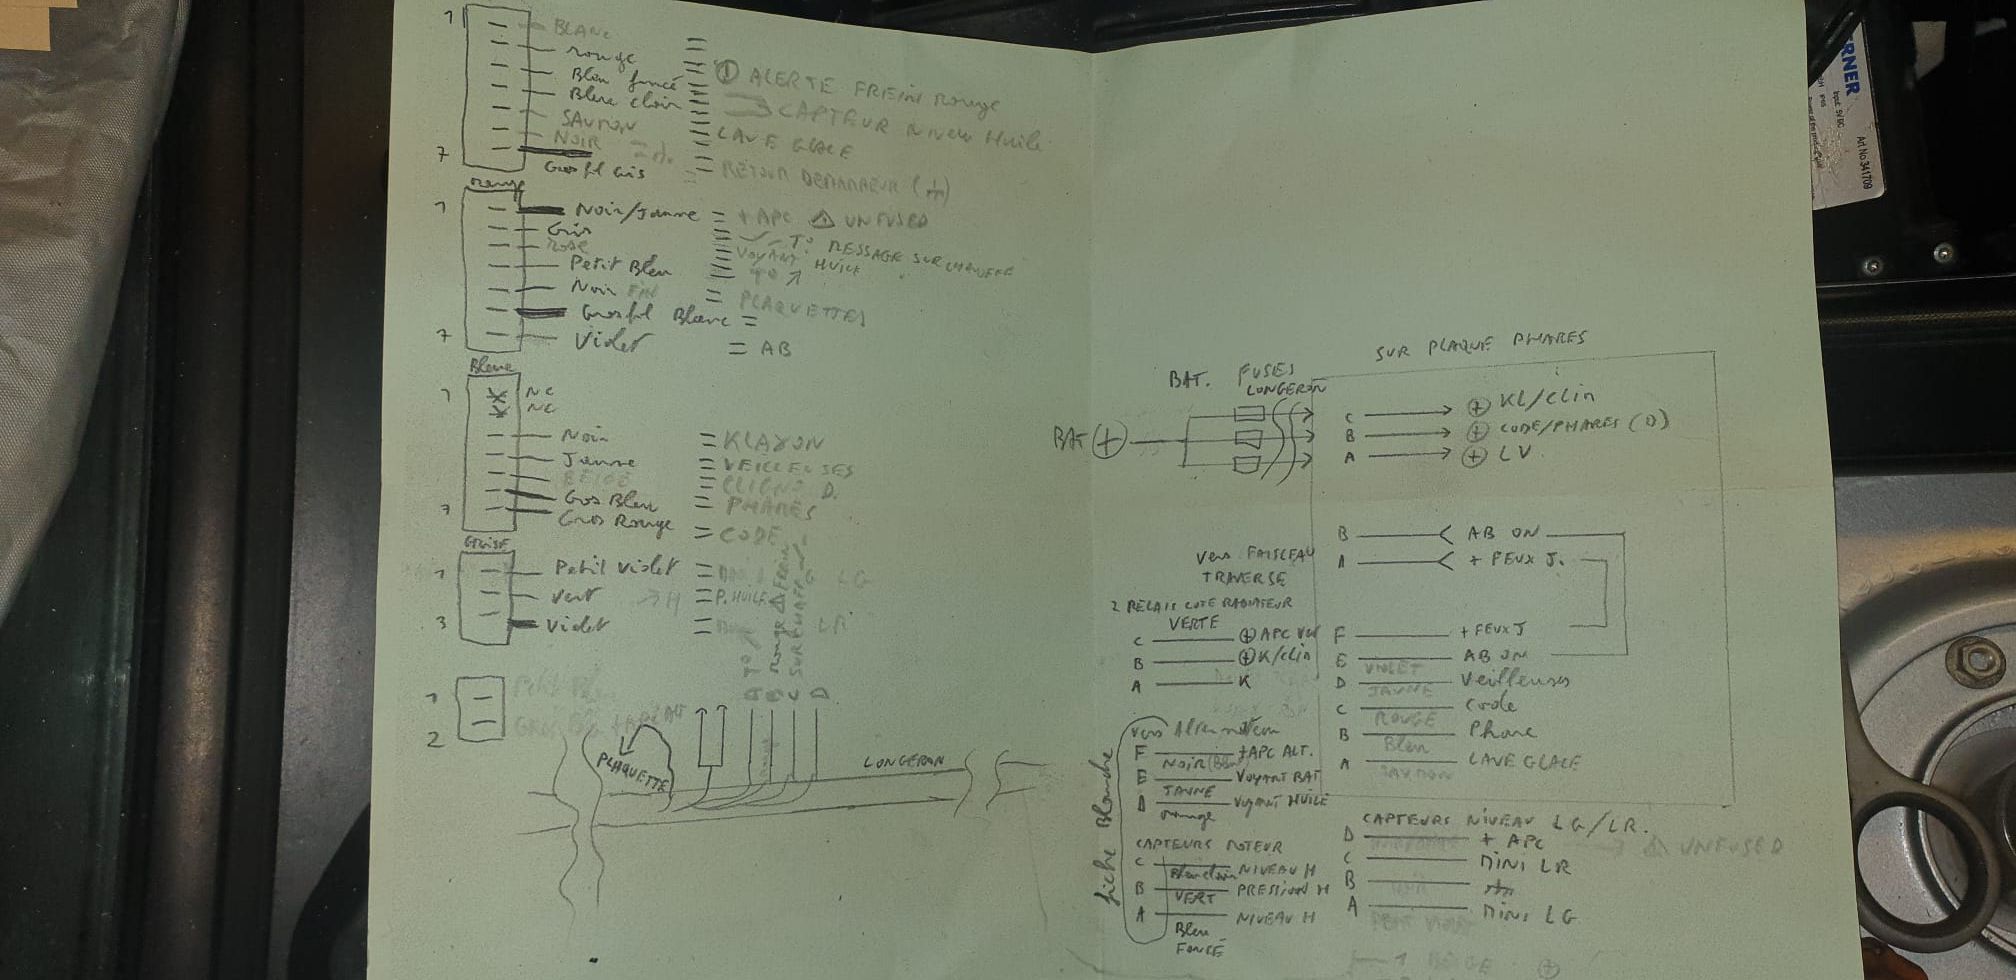 1 BLANC =
rouge =
Bleu foncé = ① ALERTE FREIN Rouge
Bleu clair = CAPTEUR NIVEAU HUILE
SAUMON = LAVE GLACE
NOIR =
7 Gros fil Gris = RETOUR DEMARREUR
Orange
1 Noir/Jaune = + APC ⚠ UNFUSED
Gris = T° MESSAGE SURCHAUFFE
ROSE = VOYANT T° HUILE
Petit Bleu =
Noir FIN = PLAQUETTES
Gros fil Blanc =
7 Violet = AB
Bleue
1 NC
NC
Noir = KLAXON
Jaune = VEILLEUSES
BEIGE = CLIGNO D.
Gros Bleu = PHARES
7 Gros Rouge = CODE
GRISE
1 Petit Violet = LG
Vert → H = P. HUILE
3 Violet = LR
1
2
A T°
B rouge ⚠ FREIN
C SURCHAUFFE
D
PLAQUETTE
LONGERON
SUR PLAQUE PHARES
BAT. FUSES
LONGERON
BAT +
C + KL/clin
B + CODE/PHARES (D)
A + LV.
B AB ON
A + FEUX J.
vers FAISCEAU
TRAVERSE
2 RELAIS COTE RADIATEUR
VERTE
C + APC
B + K/clin
A K
F + FEUX J
E AB ON
VIOLET
D Veilleuses
JAUNE
C Code
ROUGE
B Phare
Bleu
A LAVE GLACE
SAUMON
fiche Blanche
vers Alternateur
F + APC ALT.
NOIR
E VOYANT BAT
JAUNE
D VOYANT HUILE
orange
CAPTEURS MOTEUR
C NIVEAU H
Bleu clair
B PRESSION H
VERT
A NIVEAU H
Bleu
FONCÉ
CAPTEURS NIVEAU LG/LR.
D + APC ⚠ UNFUSED
C MINI LR
B
A MINI LG
BEIGE +
RNER
Input: 9V DC
Art.No 341709